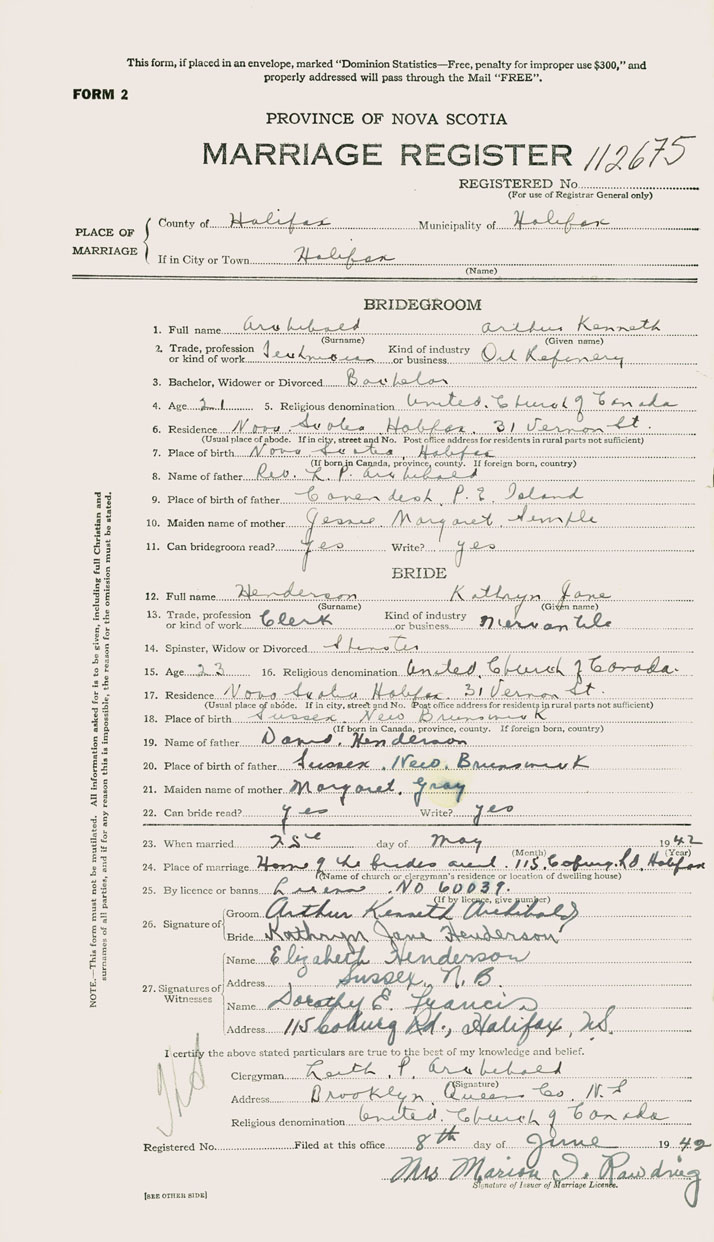 This form, if placed in an envelope, marked "Dominion Statistics—Free, penalty for improper use $300," and
properly addressed will pass through the Mail "FREE".
FORM 2
PROVINCE OF NOVA SCOTIA
MARRIAGE REGISTER 112675
REGISTERED No.
(For use of Registrar General only)
PLACE OF MARRIAGE
County of Halifax Municipality of Halifax
If in City or Town Halifax
(Name)
BRIDEGROOM
1. Full name Archibald Arthur Kenneth
(Surname) (Given name)
2. Trade, profession or kind of work Kind of industry or business Oil Refinery
3. Bachelor, Widower or Divorced Bachelor
4. Age 21 5. Religious denomination United Church of Canada
6. Residence Nova Scotia Halifax 31 Vernon St.
(Usual place of abode. If in city, street and No. Post office address for residents in rural parts not sufficient)
7. Place of birth Nova Scotia, Halifax
(If born in Canada, province, county. If foreign born, country)
8. Name of father Rev. L. P. Archibald
9. Place of birth of father Cavendish, P. E. Island
10. Maiden name of mother Jessie Margaret Semple
11. Can bridegroom read? yes Write? yes
BRIDE
12. Full name Henderson Kathryn Jane
(Surname) (Given name)
13. Trade, profession or kind of work Clerk Kind of industry or business Mercantile
14. Spinster, Widow or Divorced Spinster
15. Age 23 16. Religious denomination United Church of Canada.
17. Residence Nova Scotia Halifax. 31 Vernon St.
(Usual place of abode. If in city, street and No. Post office address for residents in rural parts not sufficient)
18. Place of birth Sussex New Brunswick
(If born in Canada, province, county. If foreign born, country)
19. Name of father David Henderson
20. Place of birth of father Sussex, New Brunswick
21. Maiden name of mother Margaret Gray
22. Can bride read? yes Write? yes
23. When married day of May 1942
(Month) (Year)
24. Place of marriage Home of the brides aunt. 115 Coburg Rd, Halifax
(Name of church or clergyman's residence or location of dwelling house)
25. By licence or banns License No 60039.
(If by licence, give number)
26. Signature of
Groom Arthur Kenneth Archibald
Bride Kathryn Jane Henderson
27. Signatures of Witnesses
Name Elizabeth Henderson
Address Sussex, N. B.
Name Dorothy E. Francis
Address 115 Coburg Rd., Halifax, N.S.
I certify the above stated particulars are true to the best of my knowledge and belief.
Clergyman Leith P. Archibald
(Signature)
Address Brooklyn Queens Co. N. S
Religious denomination United Church of Canada
Registered No. Filed at this office 8th day of June 1942
Mrs Marion I. Rawding
Signature of Issuer of Marriage Licence.
[SEE OTHER SIDE]
NOTE.—This form must not be mutilated. All information asked for is to be given, including full Christian and
surnames of all parties, and if for any reason this is impossible, the reason for the omission must be stated.